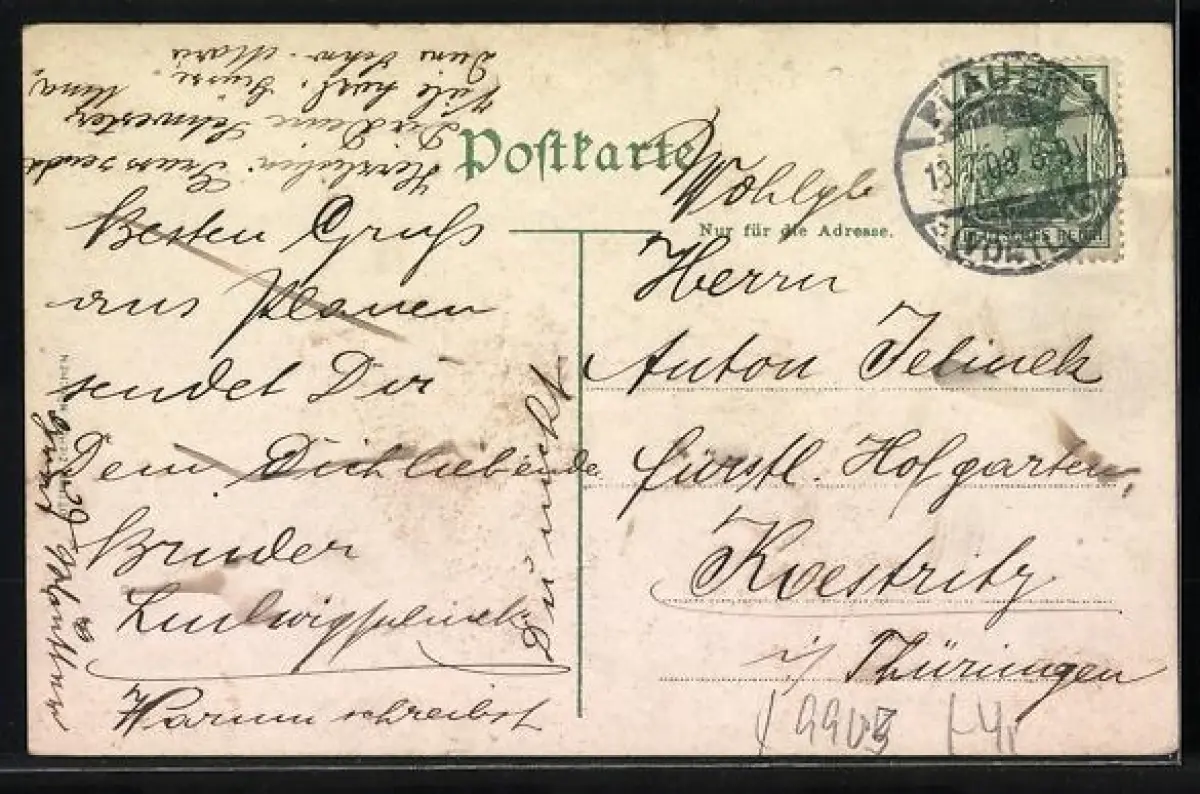 Herzlichen Gruss sendet
Dir Deine Schwester
Viele herzl. Grüsse.
Deine Schw. Marie
Postkarte
Nur für die Adresse.
PLAUEN
13.7.09. 6-8V
(VOGTL.)
5
DEUTSCHES REICH
Wohlgb
Herrn
Anton Jelinek
fürstl. Hofgarten,
Koestritz
i/ Thüringen
Besten Gruß
aus Plauen
sendet Dir
Dein Dich liebende
Bruder
Ludwig Jelinek
Warum schreibst
Du nicht